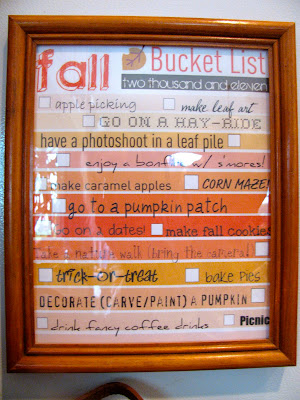 fall Bucket List
two thousand and eleven
apple picking make leaf art
GO ON A HAY-RIDE
have a photoshoot in a leaf pile
enjoy a bonfire w/ s'mores!
make caramel apples CORN MAZE!
go to a pumpkin patch
go on a dates! make fall cookies
take a nature walk (bring the camera)
trick-or-treat bake pies
DECORATE (CARVE/PAINT) A PUMPKIN
drink fancy coffee drinks Picnic